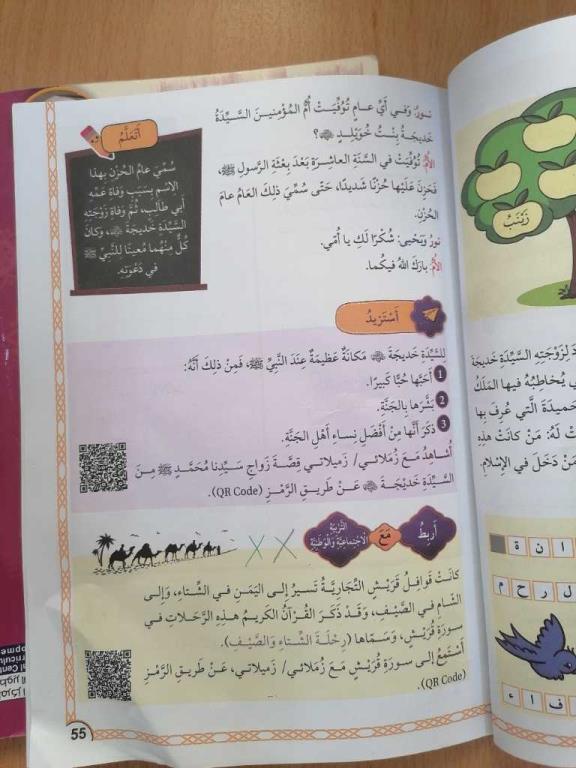 نورُ: وَفي أَيِّ عامٍ تُوُفِّيَتْ أُمُّ المُؤْمِنينَ السَّيِّدَةُ
خَديجَةُ بِنْتُ خُوَيْلِدٍ ؟
الأُمُّ: تُوُفِّيَتْ في السَّنَةِ العاشِرَةِ بَعْدَ بِعْثَةِ الرَّسولِ ﷺ،
فَحَزِنَ عَلَيْها حُزْنًا شَديدًا، حَتّى سُمِّيَ ذلِكَ العامُ عامَ
الحُزْنِ.
نورُ وَيَحْيى: شُكْرًا لَكِ يا أُمّي.
الأُمُّ: بارَكَ اللهُ فيكُما.
أَتَعَلَّمُ
سُمِّيَ عامُ الحُزْنِ بِهذا
الِاسْمِ بِسَبَبِ وَفاةِ عَمِّهِ
أَبي طالِبٍ، ثُمَّ وَفاةِ زَوْجَتِهِ
السَّيِّدَةِ خَديجَةَ ، وَكانَ
كُلٌّ مِنْهُما مُعينًا لِلنَّبِيِّ ﷺ
في دَعْوَتِهِ.
أَسْتَزيدُ
لِلسَّيِّدَةِ خَديجَةَ مَكانَةٌ عَظيمَةٌ عِنْدَ النَّبِيِّ ﷺ، فَمِنْ ذلِكَ أَنَّهُ:
1 أَحَبَّها حُبًّا كَبيرًا.
2 بَشَّرَها بِالجَنَّةِ.
3 ذَكَرَ أَنَّها مِنْ أَفْضَلِ نِساءِ أَهْلِ الجَنَّةِ.
أُشاهِدُ مَعَ زُمَلائي/ زَميلاتي قِصَّةَ زَواجِ سَيِّدِنا مُحَمَّدٍ ﷺ مِنَ
السَّيِّدَةِ خَديجَةَ عَنْ طَريقِ الرَّمْزِ (QR Code).
أَرْبِطُ مَعَ التَّرْبِيَةِ
الِاجْتِماعِيَّةِ وَالوَطَنِيَّةِ
كانَتْ قَوافِلُ قُرَيْشٍ التِّجارِيَّةُ تَسيرُ إِلى اليَمَنِ في الشِّتاءِ، وَإِلى
الشّامِ في الصَّيْفِ، وَقَدْ ذَكَرَ القُرْآنُ الكَريمُ هذِهِ الرَّحَلاتِ في
سورَةِ قُرَيْشٍ، وَسَمّاها (رِحْلَةَ الشِّتاءِ وَالصَّيْفِ).
أَسْتَمِعُ إِلى سورَةِ قُرَيْشٍ مَعَ زُمَلائي/ زَميلاتي، عَنْ طَريقِ الرَّمْزِ
(QR Code).
55
زَيْنَبُ
لِزَوْجَتِهِ السَّيِّدَةِ خَديجَةَ
يُخاطِبُهُ فيها المَلَكُ
حَميدَةَ الَّتي عُرِفَ بِها
لَهُ: مَنْ كانَتْ هذِهِ
مَنْ دَخَلَ في الإِسْلامِ.
ا ن ة
ل ر ح م
ف ا ء